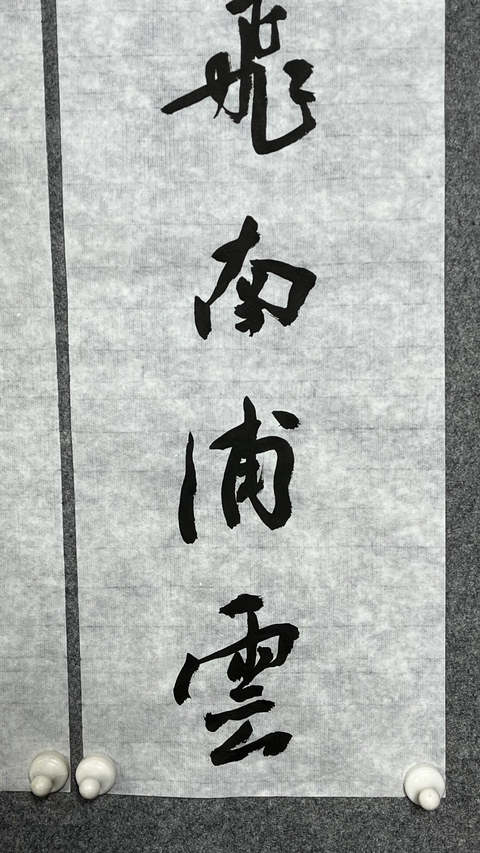 飛南浦雲